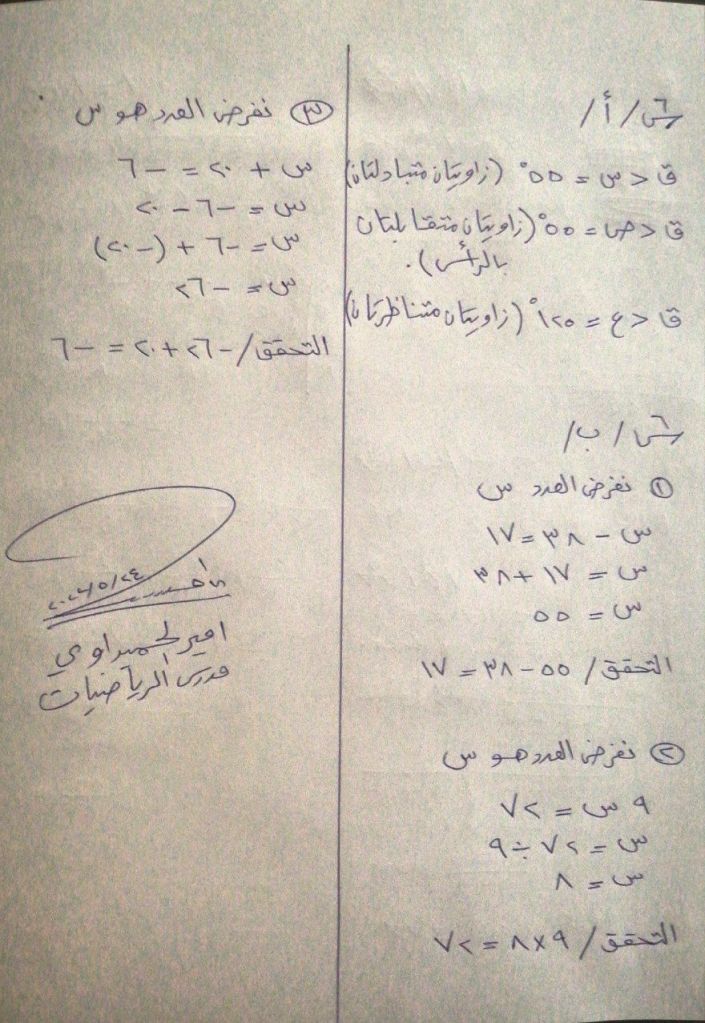 س٦/أ/
ق > س = ٥٥° (زاويتان متبادلتان)
ق > ص = ٥٥° (زاويتان متقابلتان
بالرأس).
ق > ع = ١٢٥° (زاويتان متناظرتان)
س٦/ب/
① نفرض العدد س
س - ٣٨ = ١٧
س = ١٧ + ٣٨
س = ٥٥
التحقق / ٥٥ - ٣٨ = ١٧
② نفرض العدد هو س
٩ س = ٧٢
س = ٧٢ ÷ ٩
س = ٨
التحقق / ٩ × ٨ = ٧٢
③ نفرض العدد هو س
س + ٢٠ = -٦
س = -٦ - ٢٠
س = -٦ + (-٢٠)
س = -٢٦
التحقق / -٢٦ + ٢٠ = -٦
امير الحميداوي
مدرس الرياضيات